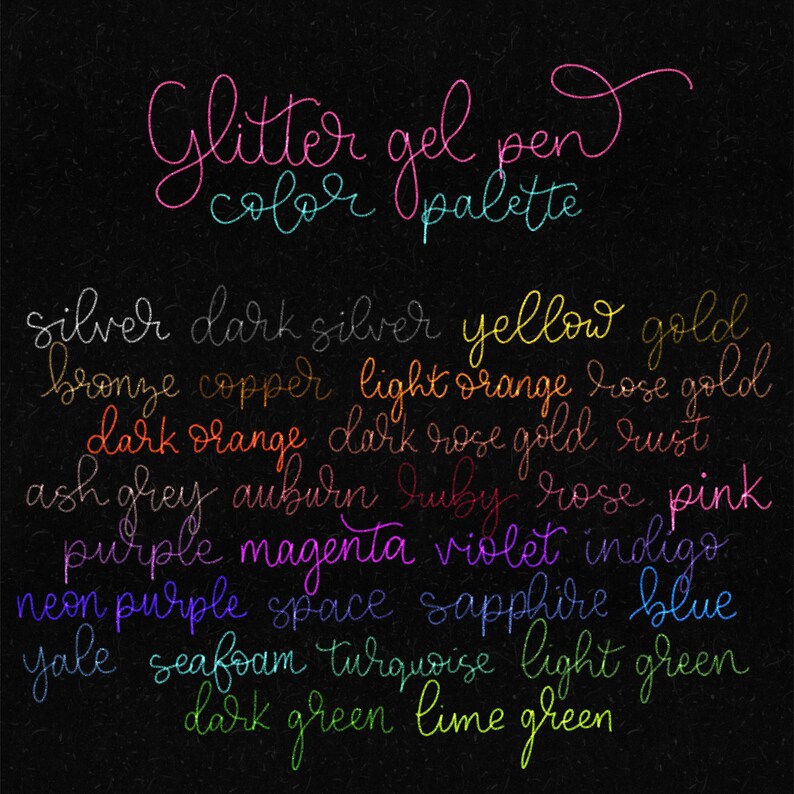 Glitter gel pen
color palette
silver dark silver yellow gold
bronze copper light orange rose gold
dark orange dark rose gold rust
ash grey auburn ruby rose pink
purple magenta violet indigo
neon purple space sapphire blue
yale seafoam turquoise light green
dark green lime green